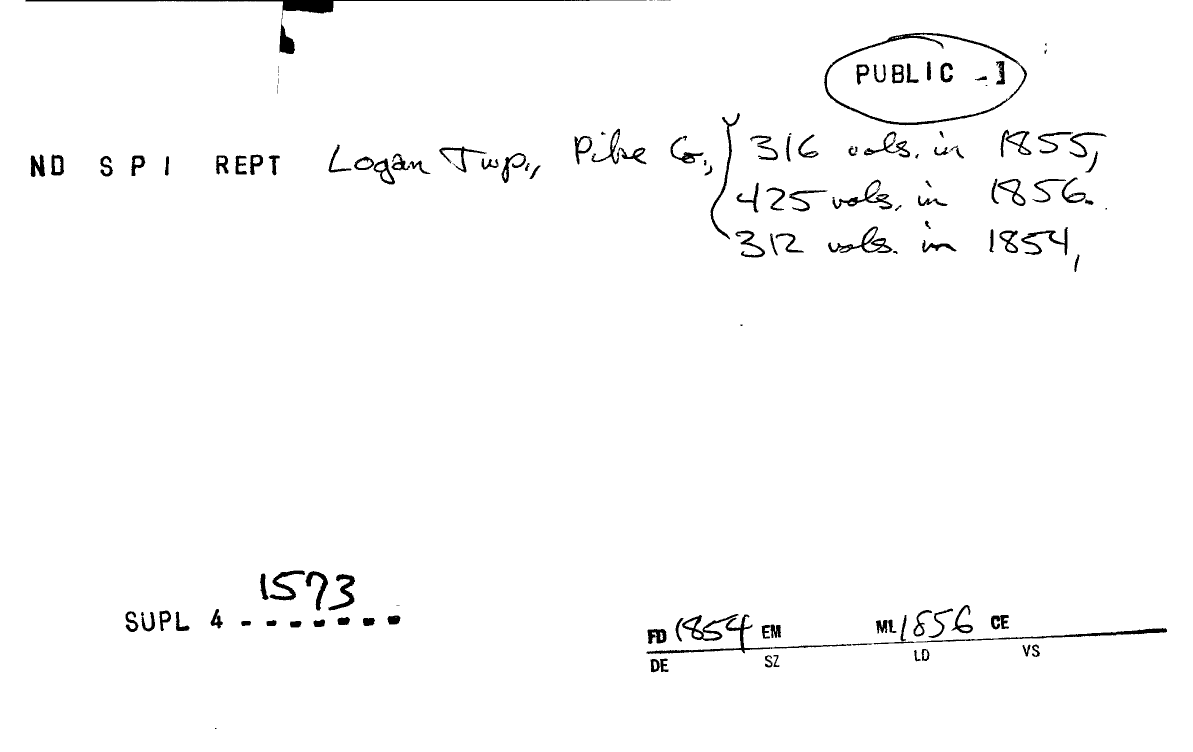 PUBLIC -1
ND S P I REPT Logan Twp., Pike Co., 316 vols. in 1855,
425 vols. in 1856.
312 vols. in 1854,
1573
SUPL 4 - - - - - - -
FD 1854 EM ML 1856 CE
DE SZ LD VS